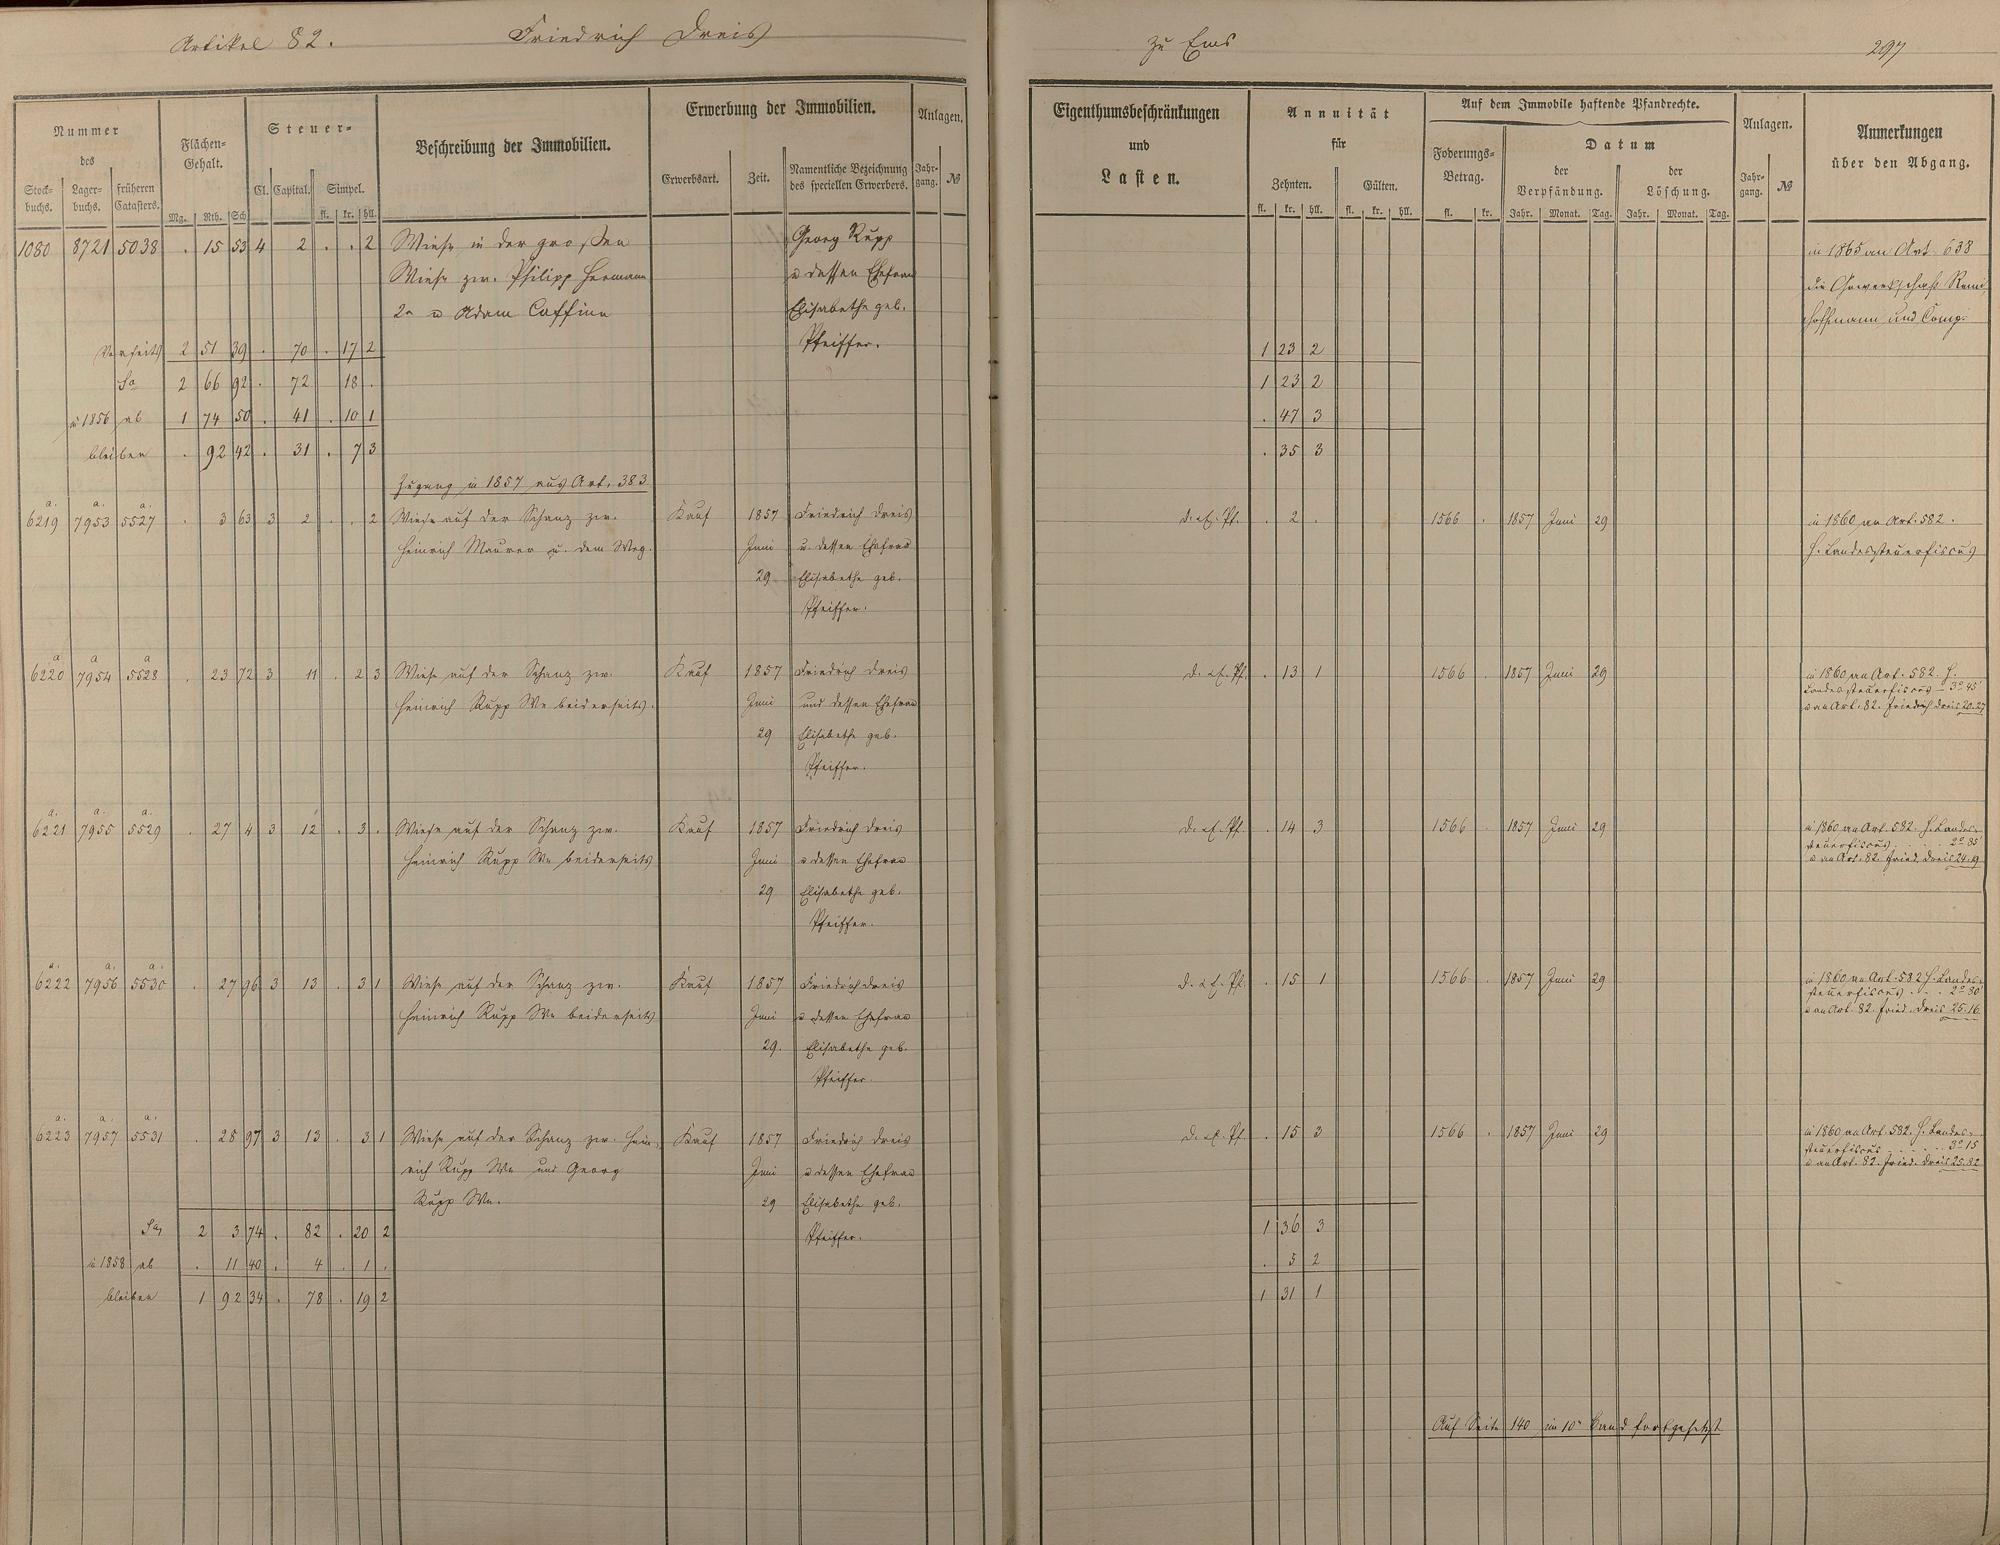 Artikel 82. Friedrich Dreis zu Ems 297
Nummer des
Stock-buchs. Lager-buchs. früheren Catasters.
Flächen-Gehalt.
Mg. Rth. Sch
Steuer-
Cl. Capital. Simpel.
fl. kr. hll.
Beschreibung der Immobilien.
Erwerbung der Immobilien.
Erwerbsart. Zeit. Namentliche Bezeichnung des speciellen Erwerbers.
Anlagen.
Jahr-gang. №
Eigenthumsbeschränkungen
und
Lasten.
Annuität
für
Zehnten. Gülten.
fl. kr. hll. fl. kr. hll.
Auf dem Immobile haftende Pfandrechte.
Foderungs-Betrag.
fl. kr.
Datum
der Verpfändung. der Löschung.
Jahr. Monat. Tag. Jahr. Monat. Tag.
Anlagen.
Jahr-gang. №
Anmerkungen
über den Abgang.
1080 8721 5038 . 15 53 4 2 . . 2 Wiese in der großen Georg Rupp in 1865 an Art. 638
Wiese zw. Philipp Hermann u dessen Ehefrau die Gewerkschaft Remi,
2r u Adam Caffine Elisabethe geb. Hoffmann und Comp.
Pfeiffer.
Vorseits 2 51 39 . 70 . 17 2 1 23 2
Sa 2 66 92 . 72 18 . 1 23 2
in 1856 ab 1 74 50 . 41 . 10 1 . 47 3
bleiben . 92 42 . 31 . 7 3 . 35 3
Zugang in 1857 aus Art. 383
a. a. a.
6219 7953 5527 . 3 63 3 2 . . 2 Wiese auf der Schanz zw. Kauf 1857 Friedrich Dreis d. Pf. . 2 . 1566 . 1857 Juni 29 in 1860 an Art. 582.
Heinrich Maurer u. dem Weg. Juni u. dessen Ehefrau H. Landessteuerfiscus
29 Elisabethe geb.
Pfeiffer.
a a a
6220 7954 5528 . 23 72 3 11 . 2 3 Wiese auf der Schanz zw. Kauf 1857 Friedrich Dreis d. Pf. . 13 1 1566 . 1857 Juni 29 in 1860 an Art. 582. H.
Heinrich Rupp We beiderseits. Juni und dessen Ehefrau Landessteuerfiscus 3° 45'
29 Elisabethe geb. u an Art. 82. Friedrich Dreis 20.27
Pfeiffer.
a. a. a.
6221 7955 5529 . 27 4 3 12 . 3 . Wiese auf der Schanz zw. Kauf 1857 Friedrich Dreis d. Pf. . 14 3 1566 . 1857 Juni 29 in 1860 an Art. 582. H. Landes-
Heinrich Rupp We beiderseits Juni u dessen Ehefrau steuerfiscus 2° 85'
29 Elisabethe geb. u an Art. 82. Fried. Dreis 24.19
Pfeiffer.
a. a. a.
6222 7956 5530 . 27 96 3 13 . 3 1 Wiese auf der Schanz zw. Kauf 1857 Friedrich Dreis d. Pf. . 15 1 1566 . 1857 Juni 29 in 1860 an Art. 582 H. Landes-
Heinrich Rupp We beiderseits Juni u dessen Ehefrau steuerfiscus . . . 2° 80'
29. Elisabethe geb. u an Art. 82. Fried. Dreis 25.16
Pfeiffer.
a. a. a.
6223 7957 5531 . 28 97 3 13 . 3 1 Wiese auf der Schanz zw. Hein- Kauf 1857 Friedrich Dreis d. Pf. . 15 3 1566 . 1857 Juni 29 in 1860 an Art. 582. H. Landes-
rich Rupp We und Georg Juni u dessen Ehefrau steuerfiscus 3° 15
Rupp We. 29 Elisabethe geb. u an Art. 82. Fried. Dreis 25.82
Pfeiffer.
Sa 2 3 74 . 82 . 20 2 1 36 3
in 1858 ab . 11 40 . 4 . 1 . . 5 2
bleiben 1 92 34 . 78 . 19 2 1 31 1
Auf Seite 140 im 10r Band fortgesetzt